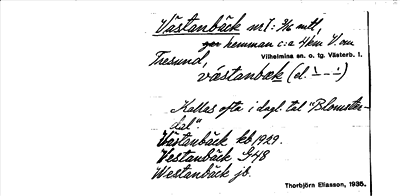 Västanbäck nr 1: 3/16 mtl,
hemman c:a 4 km V. om
Tresund, Vilhelmina sn. o. tg. Västerb. l.
västanbäk (d. `- - -´)
Kallas ofta i dagl. tal "Blomsten-
dal".
Västanbäck kb 1909.
Vestanbäck G 48
Westanbäck jb.
Thorbjörn Eliasson, 1936.